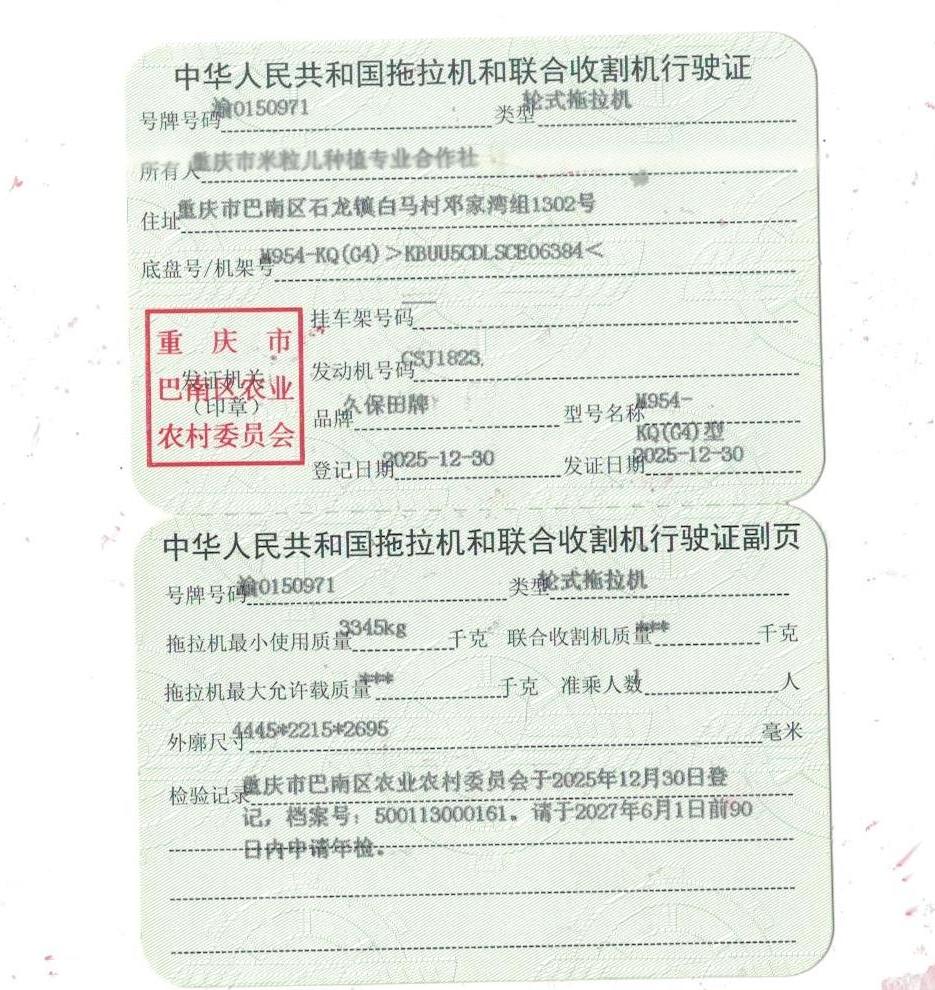 中华人民共和国拖拉机和联合收割机行驶证
号牌号码 渝0150971 类型 轮式拖拉机
所有人 重庆市米粒儿种植专业合作社
住址 重庆市巴南区石龙镇白马村邓家湾组1302号
底盘号/机架号 M954-KQ(G4)>KBUU5CDLSCE06384<
重庆市
巴南区农业
农村委员会
发证机关
(印章)
挂车架号码 ——
发动机号码 CSJ1823
品牌 久保田牌 型号名称 M954-
KQ(G4)型
登记日期 2025-12-30 发证日期 2025-12-30
中华人民共和国拖拉机和联合收割机行驶证副页
号牌号码 渝0150971 类型 轮式拖拉机
拖拉机最小使用质量 3345kg 千克 联合收割机质量 *** 千克
拖拉机最大允许载质量 *** 千克 准乘人数 1 人
外廓尺寸 4445*2215*2695 毫米
检验记录 重庆市巴南区农业农村委员会于2025年12月30日登
记，档案号：500113000161。请于2027年6月1日前90
日内申请年检。